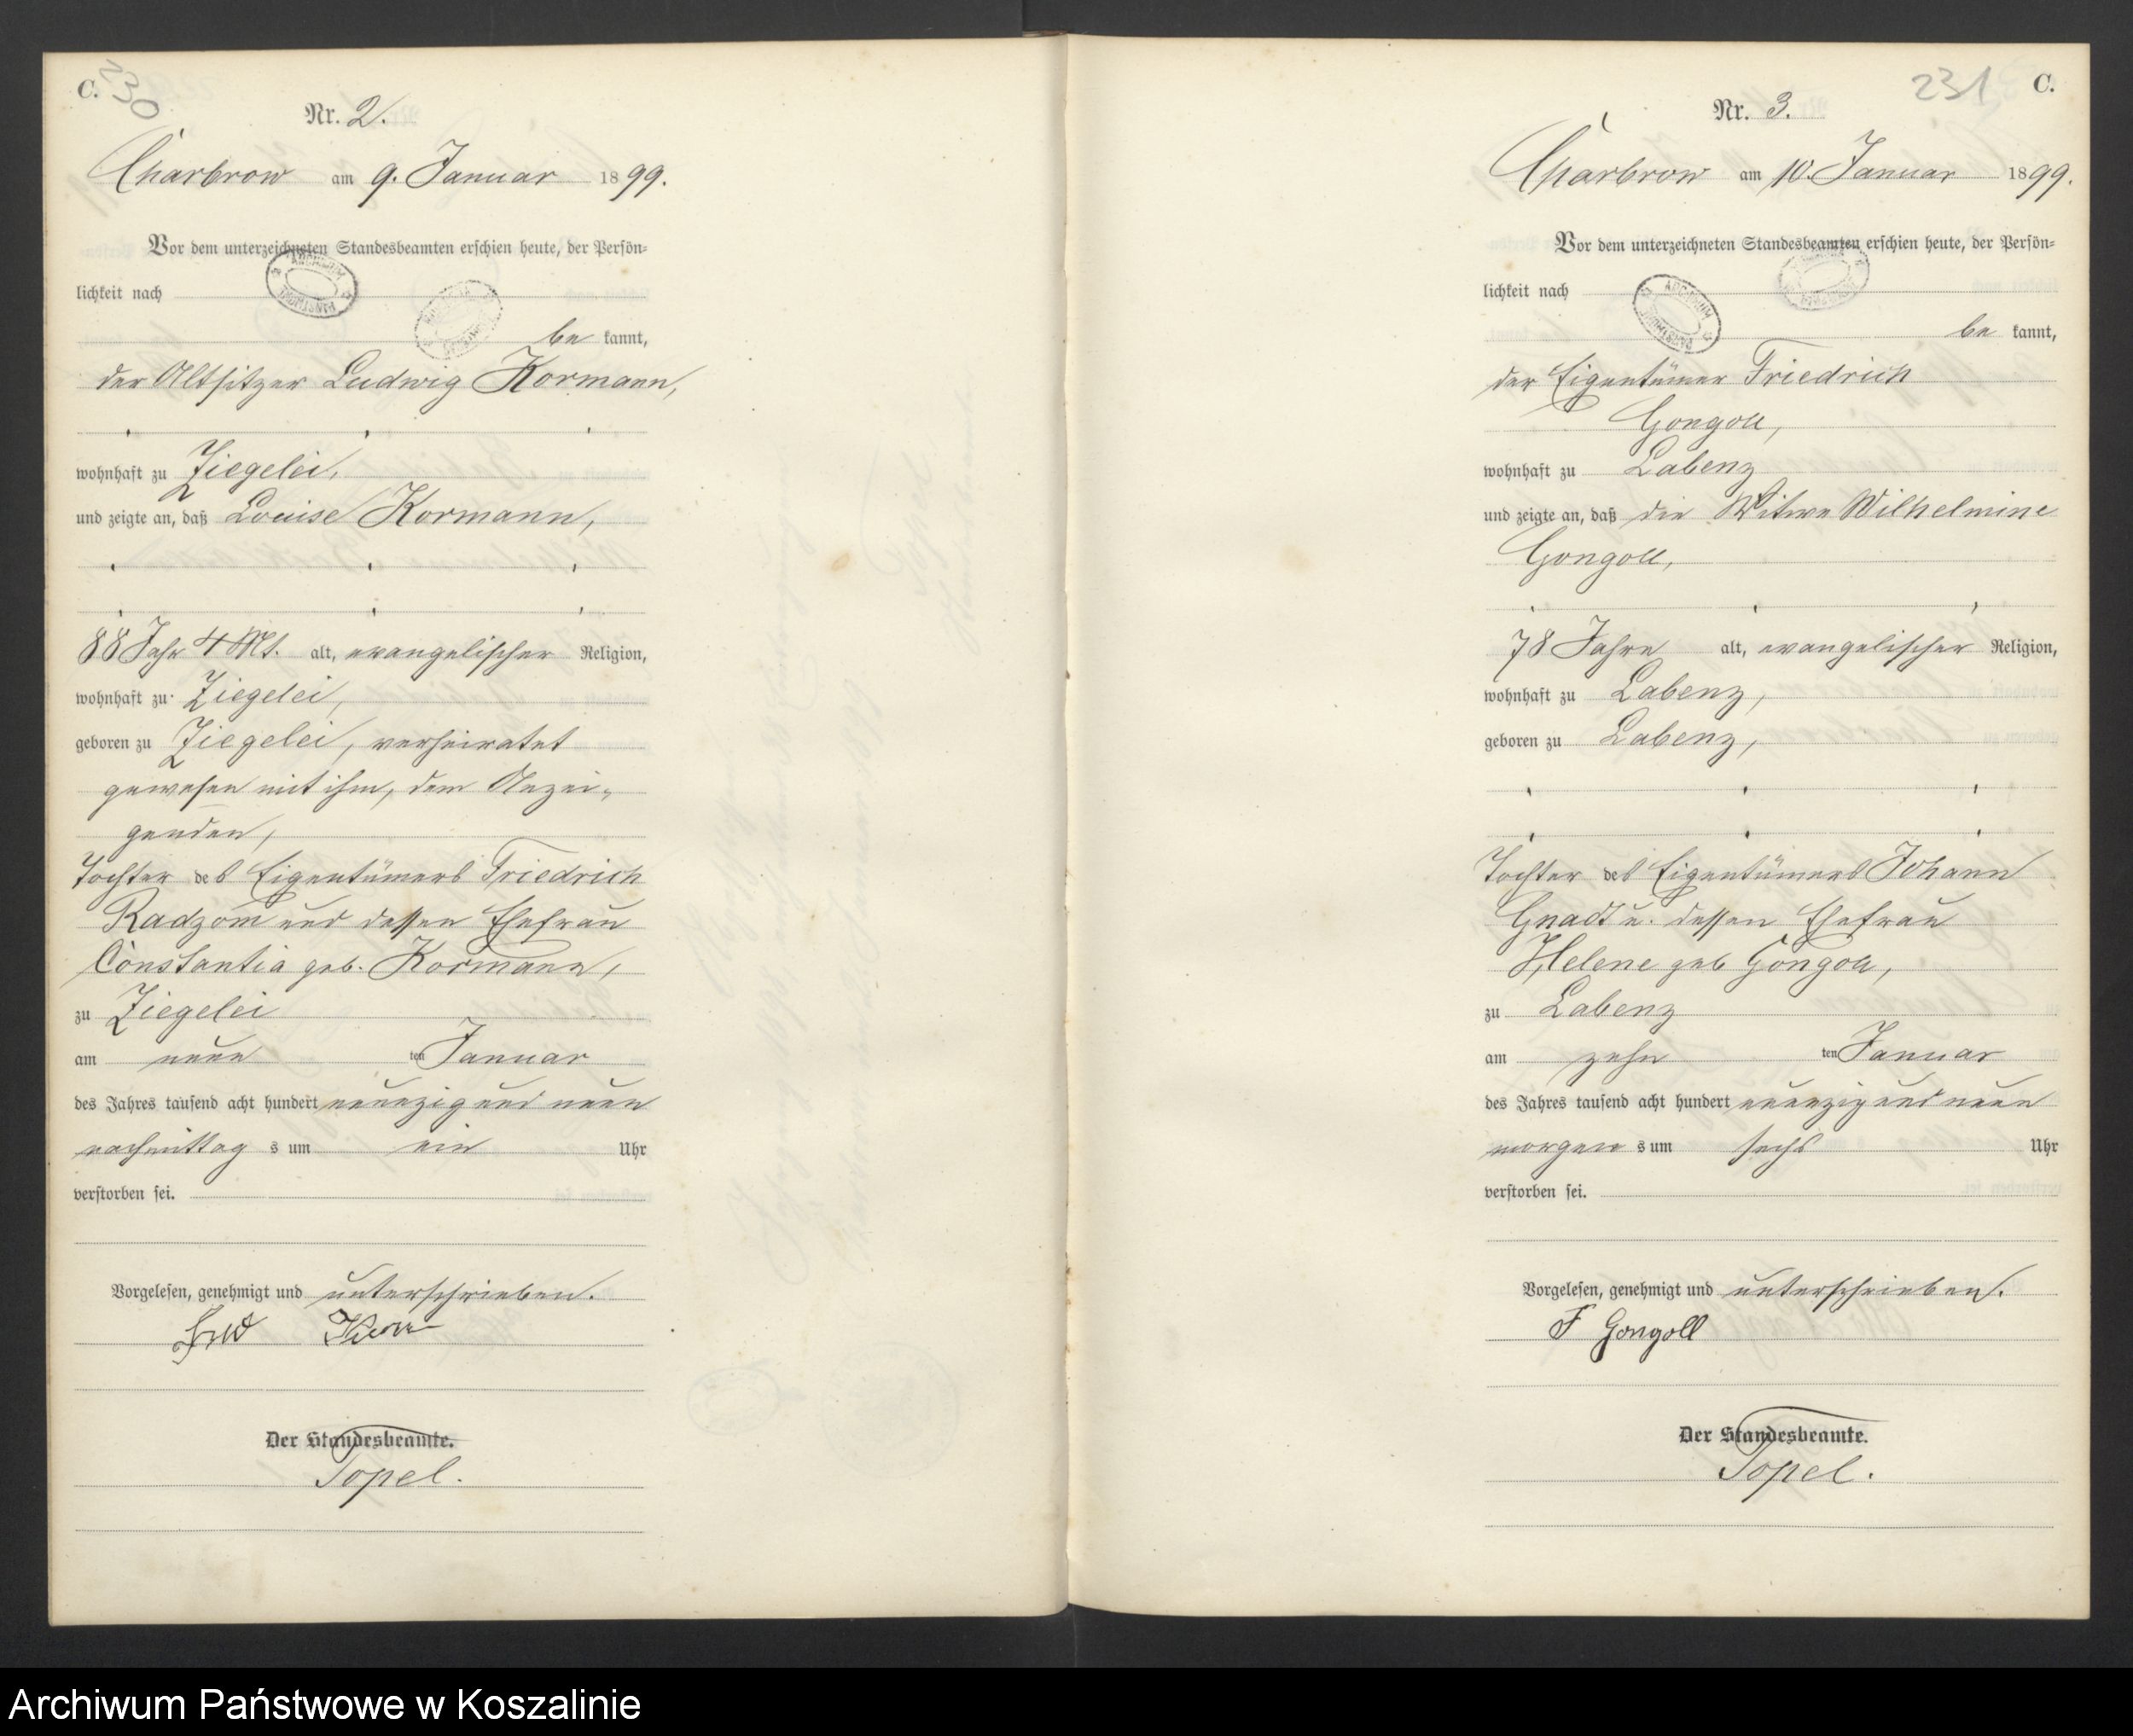 C. 230
Nr. 2.
Charbrow am 9. Januar 1899.
Vor dem unterzeichneten Standesbeamten erschien heute, der Persön-
lichkeit nach
be kannt,
der Altsitzer Ludwig Kormann,
wohnhaft zu Ziegelei,
und zeigte an, daß Louise Kormann,
88 Jahr 4 Mt. alt, evangelischer Religion,
wohnhaft zu Ziegelei,
geboren zu Ziegelei, verheiratet
gewesen mit ihm, dem Anzei-
genden,
Tochter des Eigentümers Friedrich
Radzom und dessen Ehefrau
Constantia geb. Kormann,
zu Ziegelei
am neun ten Januar
des Jahres tausend acht hundert neunzig und neun
nachmittag s um ein Uhr
verstorben sei.
Vorgelesen, genehmigt und unterschrieben.
Der Standesbeamte.
Topel.
231 C.
Nr. 3.
Charbrow am 10. Januar 1899.
Vor dem unterzeichneten Standesbeamten erschien heute, der Persön-
lichkeit nach
be kannt,
der Eigentümer Friedrich
Gongoll,
wohnhaft zu Labenz
und zeigte an, daß die Witwe Wilhelmine
Gongoll,
78 Jahre alt, evangelischer Religion,
wohnhaft zu Labenz,
geboren zu Labenz,
Tochter des Eigentümers Johann
Gnadt u. dessen Ehefrau
Helene geb Gongoll,
zu Labenz
am zehn ten Januar
des Jahres tausend acht hundert neunzig und neun
morgen s um sechs Uhr
verstorben sei.
Vorgelesen, genehmigt und unterschrieben.
F Gongoll
Der Standesbeamte.
Topel.
Archiwum Państwowe w Koszalinie